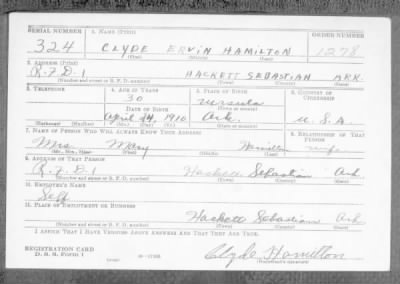 SERIAL NUMBER 1. NAME (Print) ORDER NUMBER
324 CLYDE ERVIN HAMILTON 1278
(First) (Middle) (Last)
2. ADDRESS (Print)
R.F.D. 1 HACKETT SEBASTIAN ARK.
(Number and street or R. F. D. number) (Town) (County) (State)
3. TELEPHONE 4. AGE IN YEARS 5. PLACE OF BIRTH 6. COUNTRY OF CITIZENSHIP
30
DATE OF BIRTH (Town or county)
April 1910 Ark. U.S.A.
(Exchange) (Number) (Mo.) (Day) (Yr.) (State or country)
7. NAME OF PERSON WHO WILL ALWAYS KNOW YOUR ADDRESS 8. RELATIONSHIP OF THAT PERSON
Mrs. Mary Hamilton wife
(Mr., Mrs., Miss) (First) (Middle) (Last)
9. ADDRESS OF THAT PERSON
R.F.D. 1 Hackett Sebastian Ark.
(Number and street or R. F. D. number) (Town) (County) (State)
10. EMPLOYER'S NAME
Self
11. PLACE OF EMPLOYMENT OR BUSINESS
Hackett Sebastian Ark
(Number and street or R. F. D. number) (Town) (County) (State)
I AFFIRM THAT I HAVE VERIFIED ABOVE ANSWERS AND THAT THEY ARE TRUE.
REGISTRATION CARD
D. S. S. FORM 1
Clyde Hamilton
(Registrant's signature)